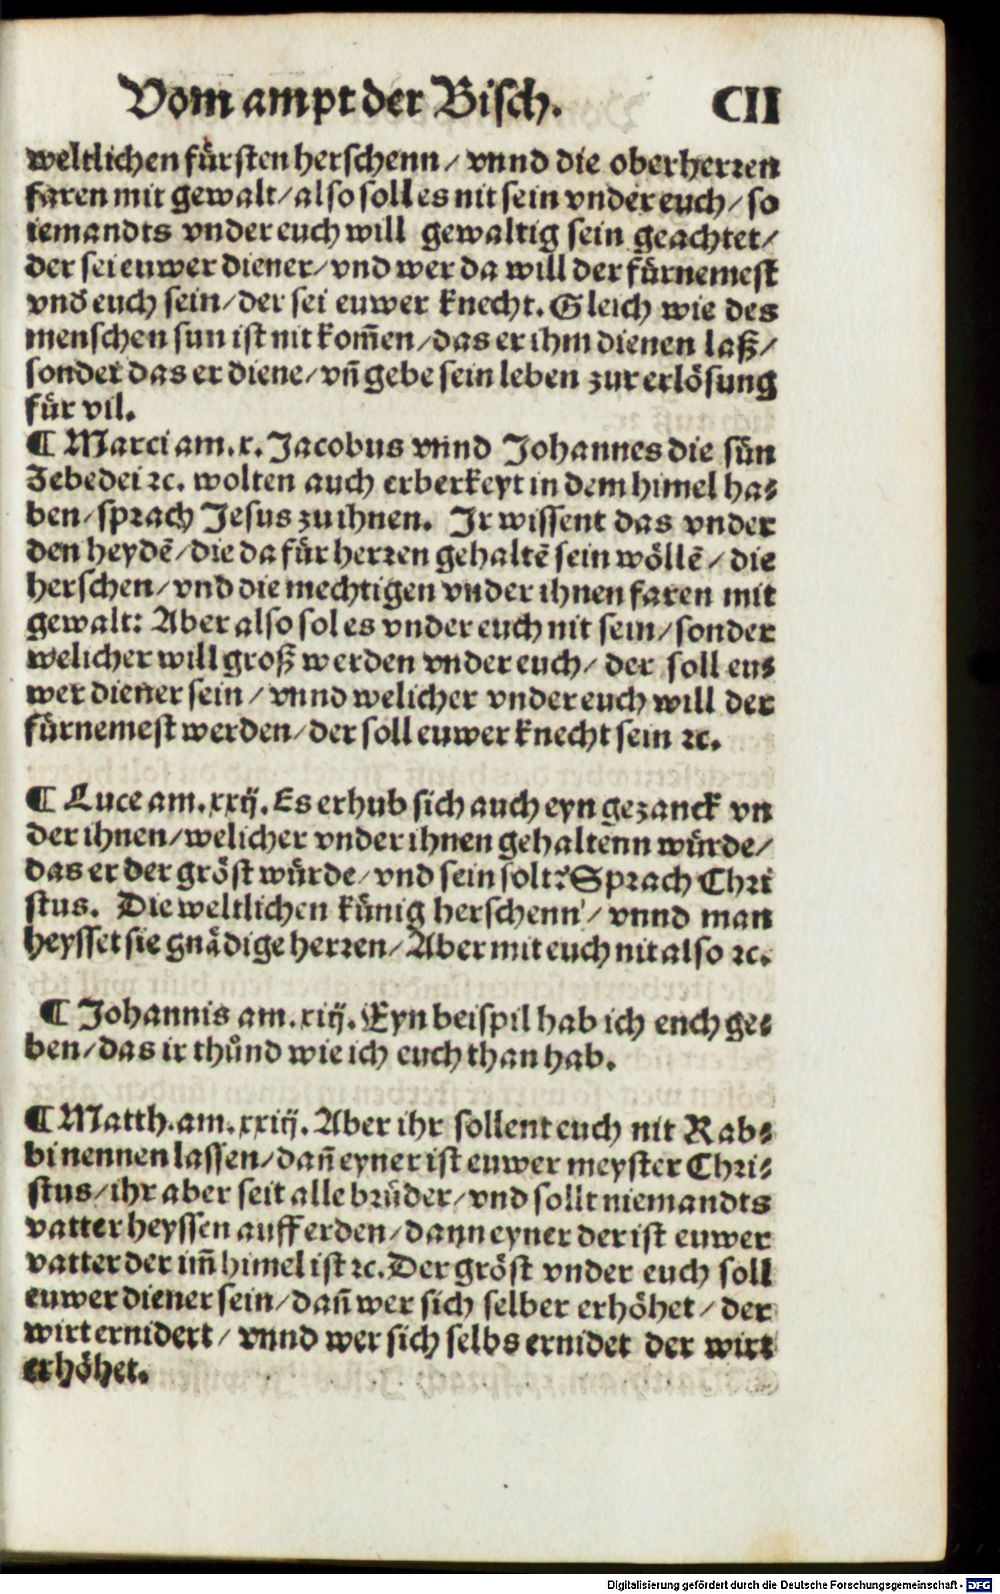 Vom ampt der Bisch. CII
weltlichen fürsten herschenn / vnnd die oberherren
faren mit gewalt / also soll es nit sein vnder euch / so
iemandts vnder euch will gewaltig sein geachtet /
der sei euwer diener / vnd wer da will der fürnemest
vnd̄ euch sein / der sei euwer knecht. Gleich wie des
menschen sun ist nit kom̄en / das er ihm dienen laß /
sonder das er diene / vn̄ gebe sein leben zur erlösung
für vil.
¶ Marci am. x. Jacobus vnnd Johannes die sün
Zebedei ꝛc. wolten auch erberkeyt in dem himel ha⸗
ben / sprach Jesus zu ihnen. Ir wissent das vnder
den heydē / die da für herren gehaltē sein wöllē / die
herschen / vnd die mechtigen vnder ihnen faren mit
gewalt: Aber also sol es vnder euch nit sein / sonder
welicher will groß werden vnder euch / der soll eu⸗
wer diener sein / vnnd welicher vnder euch will der
fürnemest werden / der soll euwer knecht sein ꝛc.
¶ Luce am. xxij. Es erhub sich auch eyn gezanck vn
der ihnen / welicher vnder ihnen gehaltenn würde /
das er der gröst würde / vnd sein solt? Sprach Chri
stus. Die weltlichen künig herschenn / vnnd man
heysset sie gnädige herren / Aber mit euch nit also ꝛc.
¶ Johannis am. xiij. Eyn beispil hab ich ench ge⸗
ben / das ir thůnd wie ich euch than hab.
¶ Matth. am. xxiij. Aber ihr sollent euch nit Rab⸗
bi nennen lassen / dan̄ eyner ist euwer meyster Chri⸗
stus / ihr aber seit alle brüder / vnd sollt niemandts
vatter heyssen auff erden / dann eyner der ist euwer
vatter der im̄ himel ist ꝛc. Der gröst vnder euch soll
euwer diener sein / dan̄ wer sich selber erhöhet / der
wirt ernidert / vnnd wer sich selbs ernidet der wirt
erhöhet.
Digitalisierung gefördert durch die Deutsche Forschungsgemeinschaft - DFG